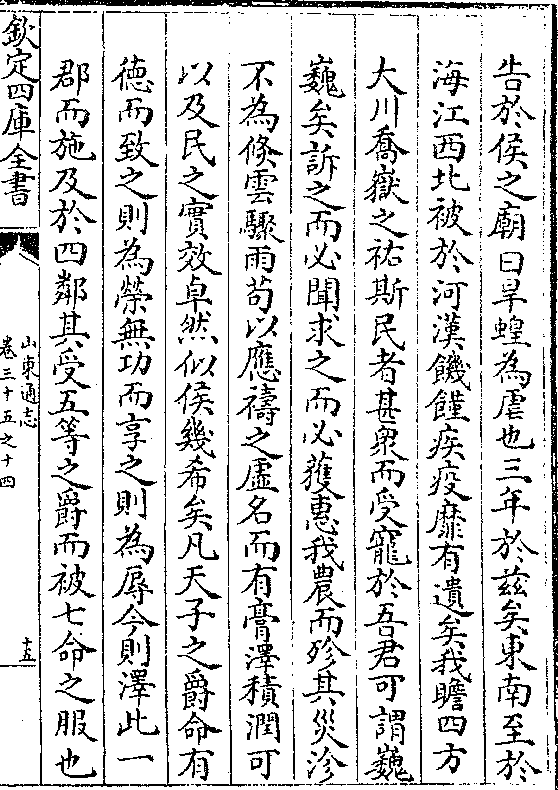 告於侯之廟曰旱蝗為虐也三年於兹矣東南至於
海江西北被於河漢饑饉疾疫靡有遺矣我瞻四方
大川喬嶽之祐斯民者甚衆而受寵於吾君可謂巍
巍矣訴之而必聞求之而必獲惠我農而殄其災沴
不為倏雲驟雨苟以應禱之虛名而有膏澤積潤可
以及民之實效卓然似侯幾希矣凡天子之爵命有
徳而致之則為榮無功而享之則為辱今則澤此一
郡而施及於四鄰其受五等之爵而被七命之服也
欽定四庫全書
山東通志
卷三十五之十四
十五